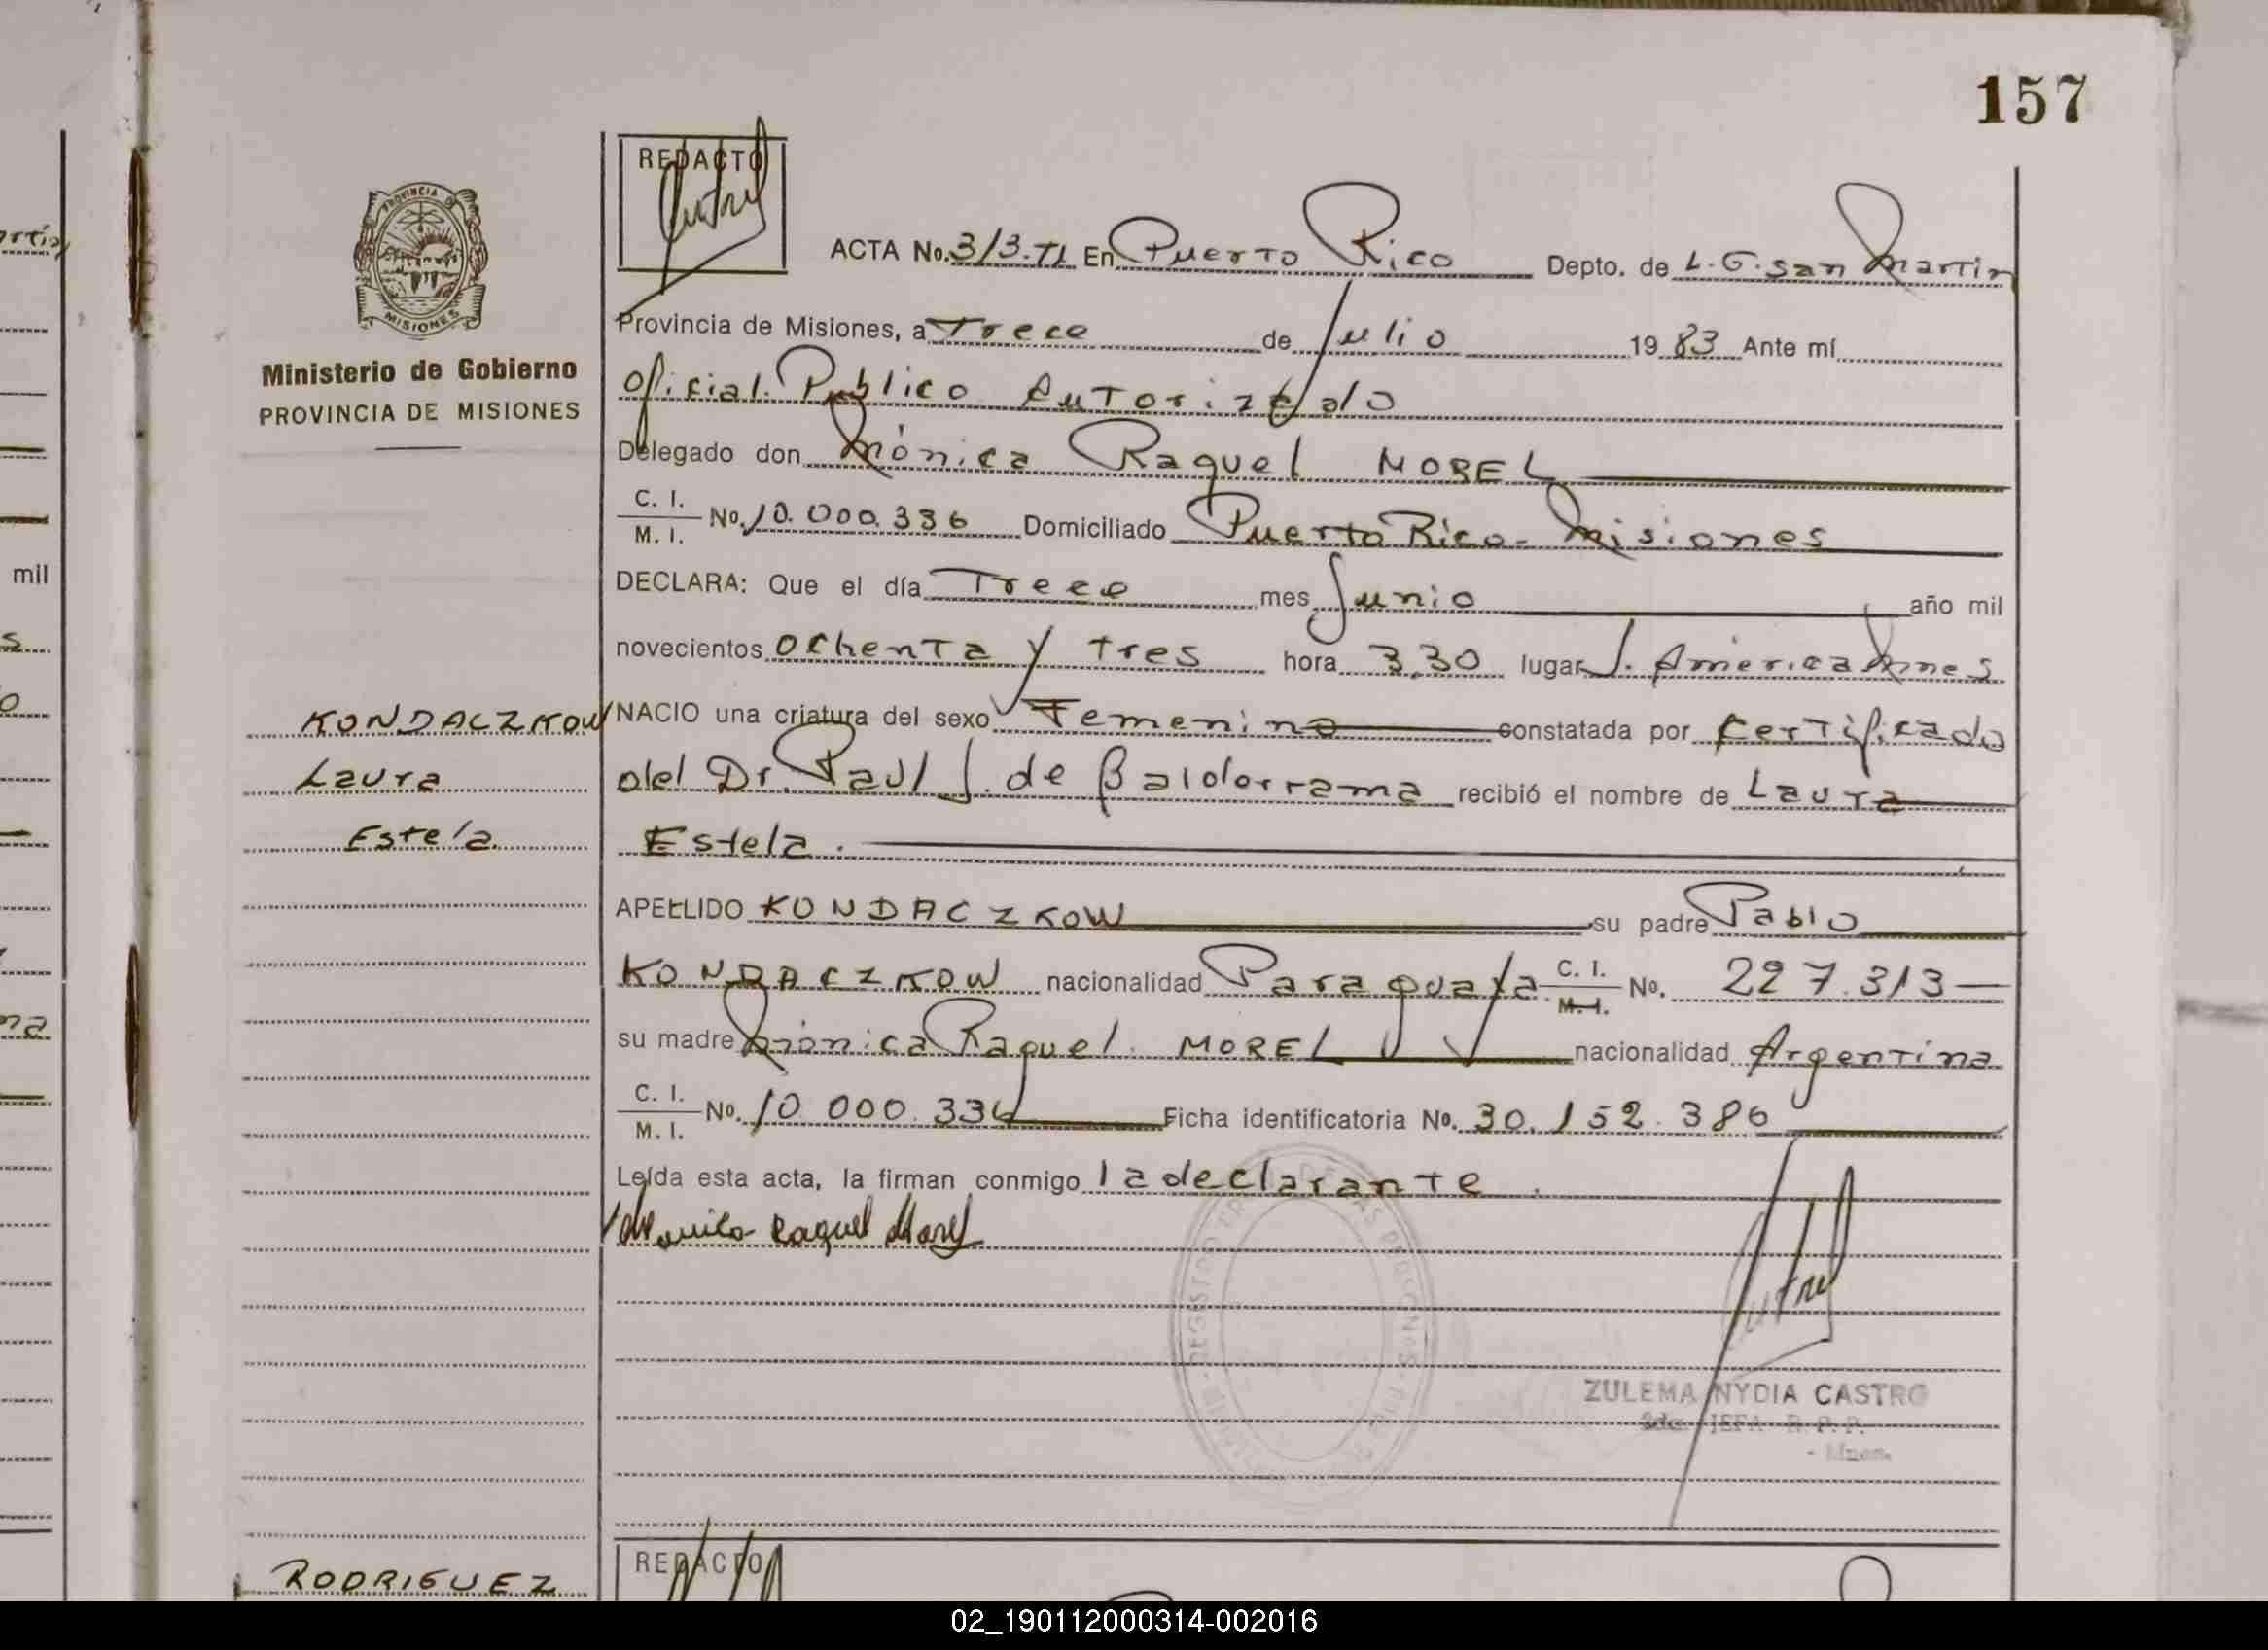 157
REDACTO
ACTA No. 313. T1 En Puerto Rico Depto. de L. G. San Martin
PROVINCIA DE
MISIONES
Ministerio de Gobierno
PROVINCIA DE MISIONES
Provincia de Misiones, a Trece de Julio 19 83 Ante mí
Oficial Publico Autorizado
Delegado don Mónica Raquel MOREL
C. I.
M. I. No. 10.000.336 Domiciliado Puerto Rico - Misiones
DECLARA: Que el día Trece mes Junio año mil
novecientos ochenta y tres hora 3,30 lugar J. América Mnes
KONDACZKOW
Laura
Estela
NACIO una criatura del sexo Femenino constatada por Certificado
del Dr. Paul J. de Balderrama recibió el nombre de Laura
Estela.
APELLIDO KONDACZKOW su padre Pablo
KONDACZKOW nacionalidad Paraguaya C. I. M. I. No. 227.313
su madre Mónica Raquel MOREL nacionalidad Argentina
C. I.
M. I. No. 10.000.336 Ficha identificatoria No. 30.152.386
Leída esta acta, la firman conmigo la declarante.
Monica Raquel Morel
ZULEMA NYDIA CASTRO
JEFA R. P. P.
RODRIGUEZ
REDACTO
mil
02_190112000314-002016